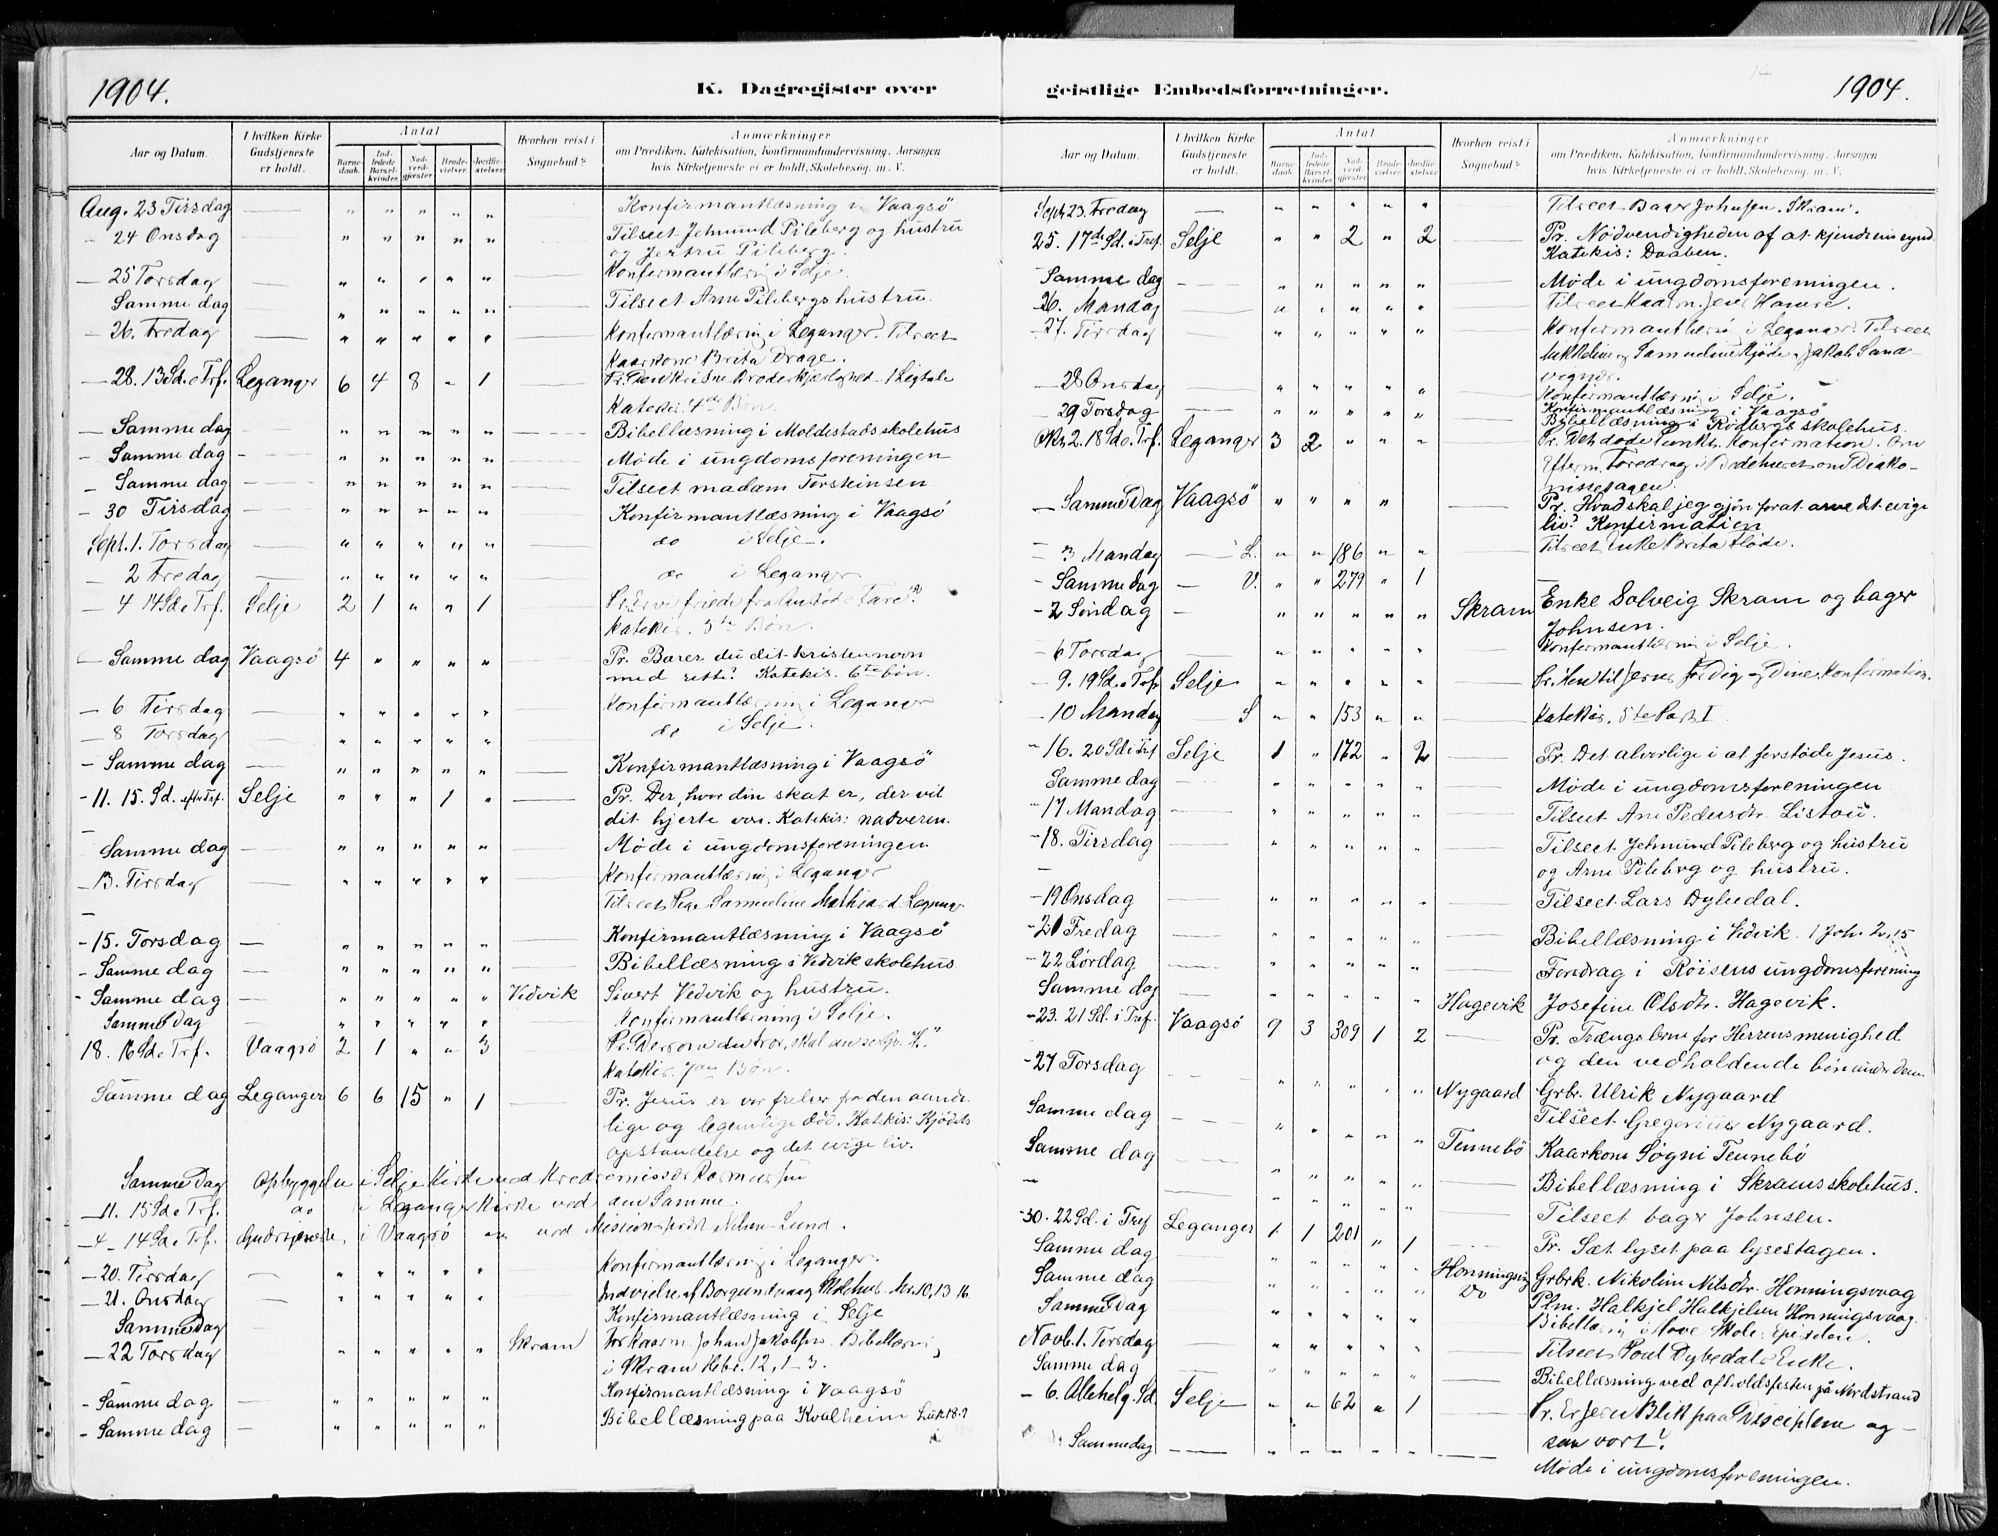 1904.
K. Dagregister over
Aar og Datum.
I hvilken Kirke Gudstjeneste er holdt.
Antal
Barne-daab.
Ind-ledede Barsel-kvinder.
Nad-verd-gjæster.
Brude-vielser.
Jordfæ-stelser.
Hvorhen reist i Sognebud?
Anmærkninger
om Prædiken, Katekisation, Konfirmandundervisning, Aarsagen
hvis Kirketjeneste ei er holdt, Skolebesøg m. V.
Aug. 23 Tirsdag — " " " " " — Konfirmantlæsning i Vaagsö
- 24 Onsdag — " " " " " — Tilseet Jetmund Pileberg og hustru
og Jertru Pileberg.
- 25 Torsdag — " " " " " — Konfirmantlæsning i Selje.
Samme dag — " " " " " — Tilseet Arne Pilebergs hustru.
- 26. Fredag — " " " " " — Konfirmantlæsning i Leganger. Tilseet
Kaarkone Brita Drage.
- 28. 13 Sd. e Trf. Leganger 6 4 8 " 1 — Pr.
Katekis. 4de Bøn.
- Samme dag — " " " " " — Bibellæsning i Moldestads skolehus
- Samme dag — " " " " " — Møde i ungdomsforeningen
- Samme dag — " " " " " — Tilseet madam Torsteinsen
- 30 Tirsdag — " " " " " — Konfirmantlæsning i Vaagsö
Sept. 1. Torsdag — " " " " " — do i Selje.
- 2 Fredag — " " " " " — do i Leganger
- 4 14 Sd e Trf. Selje 2 1 " " 1 —
Katekis. 5te Bøn.
- Samme dag Vaagsö 4 " " " " — Pr. Bærer du dit kristennavn
med rette? Katekis. 6te bøn.
- 6 Tirsdag — " " " " " — Konfirmantlæsning i Leganger
- 8 Torsdag — " " " " " — do i Selje.
- Samme dag — " " " " " — Konfirmantlæsning i Vaagsö
- 11. 15. Sd. efter Tref. Selje " " " 1 " — Pr. Der, hvor din skat er, der vil
dit hjerte vær. Katekis: nadveren.
- Samme dag — " " " " " — Møde i ungdomsforeningen
- 13. Tirsdag — " " " " " Konfirmantlæsning i Leganger
Tilseet Pige Samueline Leganger
- 15. Torsdag — " " " " " — Konfirmantlæsning i Vaagsö
- Samme dag — " " " " " — Bibellæsning i Vedvik skolehus
- Samme dag — " " " " " Vedvik Sivert Vedvik og hustru.
Samme dag — " " " " " — Konfirmantlæsning i Selje.
18. 16 Sd e Trf. Vaagsö 2 1 " " 3 — Pr. Dersom du tror, skal du se Gs. H."
Katekis. 7de Bøn.
Samme dag Leganger 6 6 15 " 1 — Pr. Jesus er vor frelser fra den aande-
lige og legemlige død. Katekis: Kjødets
opstandelse og det evige liv.
Samme Dag Opbyggelse i Selje Kirke ved
- 11. 15 Sd e Trf. do i Leganger Kirke ved den Samme.
- 4 - 14 Sd e Trf. Gudstjeneste i Vaagsö ved Missionsprest Nilsen-Lund.
- 20. Tirsdag — " " " " " Konfirmantlæsning i Leganger.
- 21. Onsdag — " " " " " Indvielse af Borgundvaag Skolehus. 10, 13-16
Samme Dag — Konfirmantlæsning i Selje
- 22 Torsdag — " " " " " Skram Kaarm. Johan Jakobsen. Bibellæsning
i Skram Hebr. 12, 1-3.
- Samme dag — " " " " " Konfirmantlæsning i Vaagsö
- Samme dag — " " " " " Bibellæsning paa Kvalheim Luk 18.9
geistlige Embedsforretninger.
1904.
Aar og Datum.
I hvilken Kirke Gudstjeneste er holdt.
Antal
Barne-daab.
Ind-ledede Barsel-kvinder.
Nad-verd-gjæster.
Brude-vielser.
Jordfæ-stelser.
Hvorhen reist i Sognebud?
Anmærkninger
om Prædiken, Katekisation, Konfirmandundervisning, Aarsagen
hvis Kirketjeneste ei er holdt, Skolebesøg m. V.
Sept. 23. Fredag — " " " " " — Tilseet Bager Johnsen. Skram.
25. 17de Sd. i Tref. Selje " " 2 " 2 — Pr. Nødvendigheden af at kjende sin synd.
Katekis: Daaben.
Samme dag — " " " " " — Møde i ungdomsforeningen.
26. Mandag — " " " " " — Tilseet Kaarm. Jens Hamre.
- 27. Tirsdag — " " " " " — Konfirmantlæsning i Leganger. Tilseet
Mikkeline og Samueline Fløde, Jakob Sand-
vegnes.
- 28 Onsdag — " " " " " — Konfirmantlæsning i Selje.
- 29 Torsdag — " " " " " — Konfirmantlæsning i Vaagsö
Bibellæsning i Rödbergs skolehus.
Okt. 2. 18 Sd e. Trf. Leganger 3 2 " " " — Pr. Det døde Punkt. Konfirmation. Om
Efterm. Foredrag i Bedehuset om Diako-
nissesagen.
Samme Dag Vaagsö " " " " — Pr. Hvad skal jeg gjøre for at arve det evige
liv? Konfirmation
- 3 Mandag — L. " " 186 " " — Tilseet Enke Brita Fløde.
- Samme Dag — V. " " 279 " 1 —
- 2 Søndag — " " " " " Skram Enke Solveig Skram og bager
Johnsen.
- 6 Torsdag — " " " " " — Konfirmantlæsning i Selje.
- 9. 19 Sd. e Trf Selje " " " " " — Pr. Hen til Jesus for Dig og Dine. Konfirmation.
- 10 Mandag S " " 153 " " — Katekis. 5te Part I
- 16. 20 Sd e Trf Selje 1 " 172 " 2 — Pr. Det alvorlige i at forstøde Jesus.
Samme dag — " " " " " — Møde i ungdomsforeningen
- 17 Mandag — " " " " " — Tilseet Ane Pedersdtr. Listou.
- 18. Tirsdag — " " " " " — Tilseet Jetmund Pileberg og hustru
og Arne Pileberg og hustru.
- 19 Onsdag — " " " " " — Tilseet Lars Dybedal.
- 21 Fredag — " " " " " — Bibellæsning i Vedvik. 1 Joh. 2, 15
- 22 Lördag — " " " " " — Foredrag i Röisens ungdomsforening
Samme dag — " " " " " Hagevik Josefine Olsdtr. Hagevik.
- 23. 21 Sd. i Tref. Vaagsö 9 3 309 1 2 — Pr. Trængslerne for Herrens menighed
og den vedholdende bøn under dem.
- 27 Torsdag — " " " " " Nygaard Grbr. Ulrik Nygaard
Samme dag — " " " " " Tilseet Gregorius Nygaard.
Samme dag — " " " " " Tennebö Kaarkone Søgni Tennebö
— " " " " " — Bibellæsning i Skrams skolehus.
— " " " " " — Tilseet bager Johnsen.
- 30. 22 Sd. i Tref Leganger 1 1 201 " 1 — Pr. Sæt lyset paa lysestagen.
Samme dag — " " " " " Honningsvg Grbrk. Nikoline Nilsdtr. Honningsvaag
Samme dag — " " " " " Do Plm. Halkjel Halkjelsen Honningsvaag
Samme Dag — " " " " " Bibellæsning i Hove Skole.
Novb. 1. Tirsdag — " " " " " — Tilseet Poul Dybedals Enke.
Samme dag — " " " " " — Bibellæsning ved afholdsfesten på Nordstrand
- 6. Allehelg. Sd. Selje " " 62 " 1 — Pr. paa Disciplene og
som vort!
Samme dag — " " " " " — Møde i ungdomsforeningen.